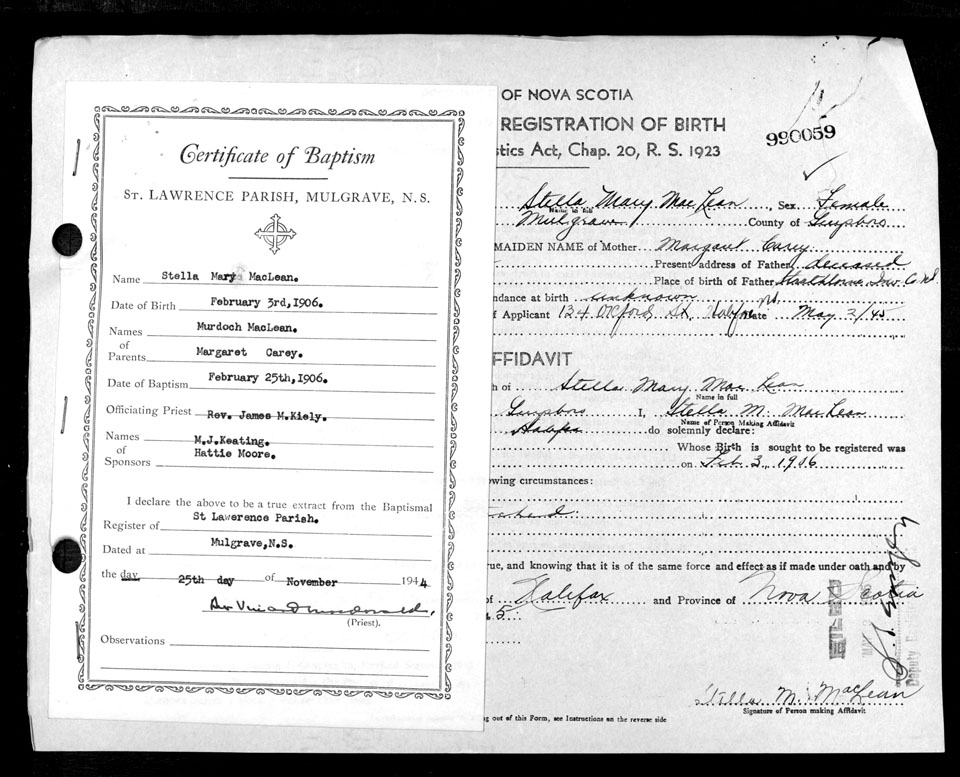 Certificate of Baptism
ST. LAWRENCE PARISH, MULGRAVE, N.S.
Name Stella Mary MacLean.
Date of Birth February 3rd,1906.
Names of Parents Murdoch MacLean.
Margaret Carey.
Date of Baptism February 25th,1906.
Officiating Priest Rev. James M.Kiely.
Names of Sponsors M.J.Keating.
Hattie Moore.
I declare the above to be a true extract from the Baptismal
Register of St Lawerence Parish.
Dated at Mulgrave,N.S.
the day 25th day of November 1944
(Priest).
Observations
OF NOVA SCOTIA
REGISTRATION OF BIRTH
stics Act, Chap. 20, R. S. 1923
990059
Stella Mary MacLean, Sex Female
Name in full
Mulgrave County of Guysboro
MAIDEN NAME of Mother Margaret Carey
Present address of Father deceased
Place of birth of Father
ndance at birth unknown
f Applicant 134 Oxford St, Halifax Date May 2/45
FFIDAVIT
h of Stella Mary MacLean
Name in full
Guysboro I, Stella M. MacLean
Name of Person Making Affidavit
Halifax do solemnly declare:
Whose Birth is sought to be registered was
on Feb. 3, 1906
wing circumstances:
rue, and knowing that it is of the same force and effect as if made under oath and by
of Halifax and Province of Nova Scotia
5
FILED
Deputy
Stella M. MacLean
Signature of Person making Affidavit
ng out of this Form, see Instructions on the reverse side